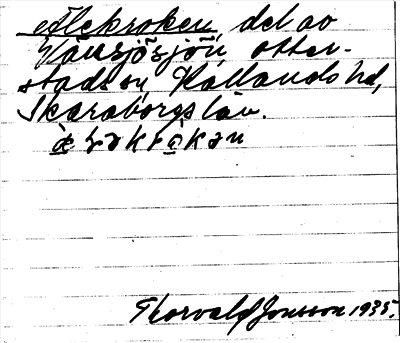 Ålekroken, del av
Vänsjösjön, otter-
stads sn, Kållands hd,
Skaraborgs län.
Thorvald Jonsson 1935.